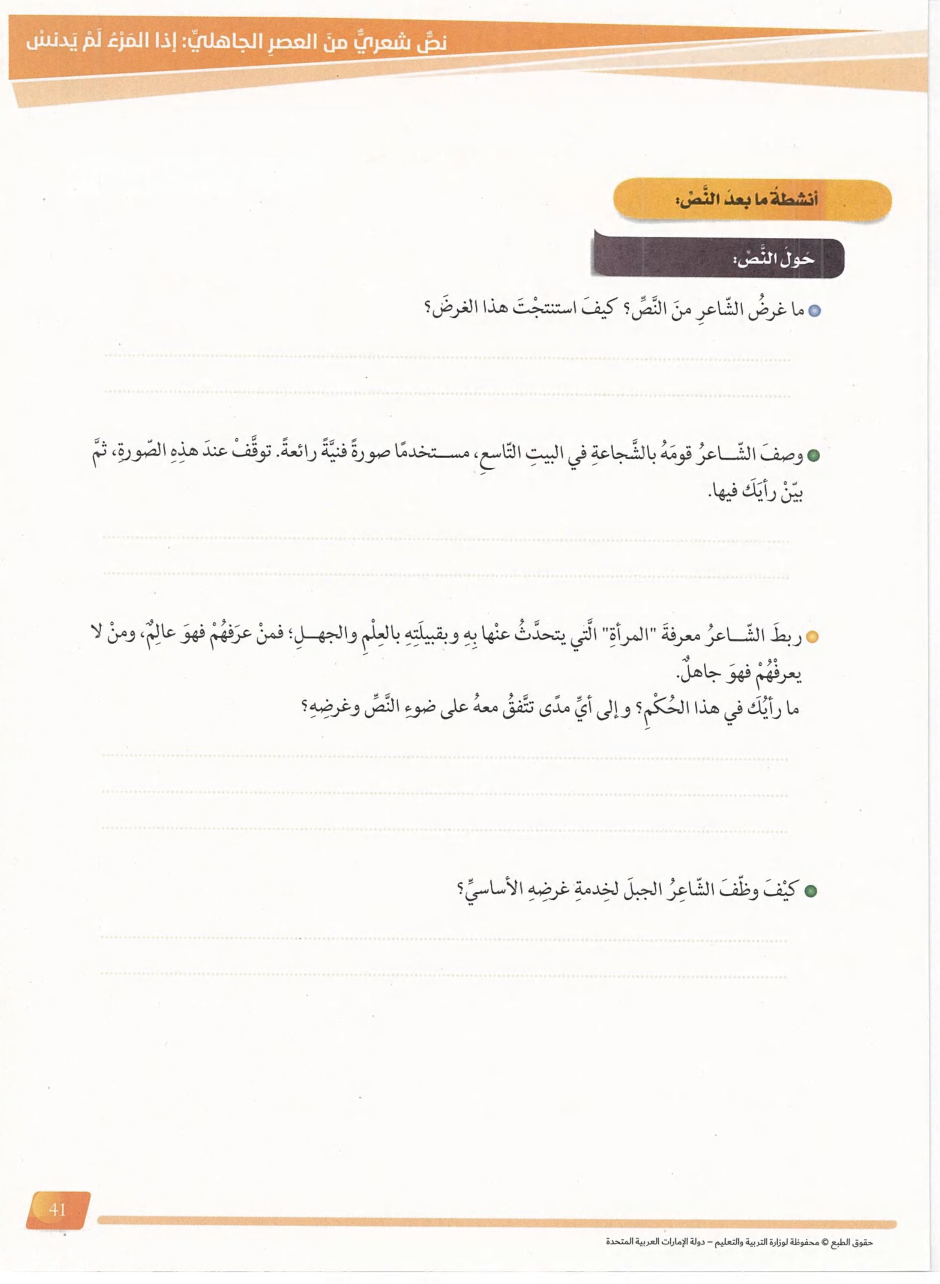 نصٌّ شعريٌّ منَ العصرِ الجاهليِّ: إذا المَرْءُ لَمْ يَدنسْ
أنشطةُ ما بعدَ النَّصِّ:
حَولَ النَّصِّ:
ما غرضُ الشّاعرِ منَ النَّصِّ؟ كيفَ استنتجْتَ هذا الغرضَ؟
وصفَ الشّاعرُ قومَهُ بالشَّجاعةِ في البيتِ التّاسعِ، مستخدمًا صورةً فنيَّةً رائعةً. توقَّفْ عندَ هذِهِ الصّورةِ، ثمَّ
بيّنْ رأيَكَ فيها.
ربطَ الشّاعرُ معرفةَ "المرأةِ" الَّتي يتحدَّثُ عنْها بِهِ وبقبيلَتِهِ بالعِلْمِ والجهلِ؛ فمنْ عرَفهُمْ فهوَ عالِمٌ، ومنْ لا
يعرفْهُمْ فهوَ جاهلٌ.
ما رأيُكَ في هذا الحُكْمِ؟ وإلى أيِّ مدًى تتَّفقُ معهُ على ضوءِ النَّصِّ وغرضِهِ؟
كيْفَ وظّفَ الشّاعِرُ الجبلَ لخِدمةِ غرضِهِ الأساسيِّ؟
41
حقوق الطبع © محفوظة لوزارة التربية والتعليم – دولة الإمارات العربية المتحدة